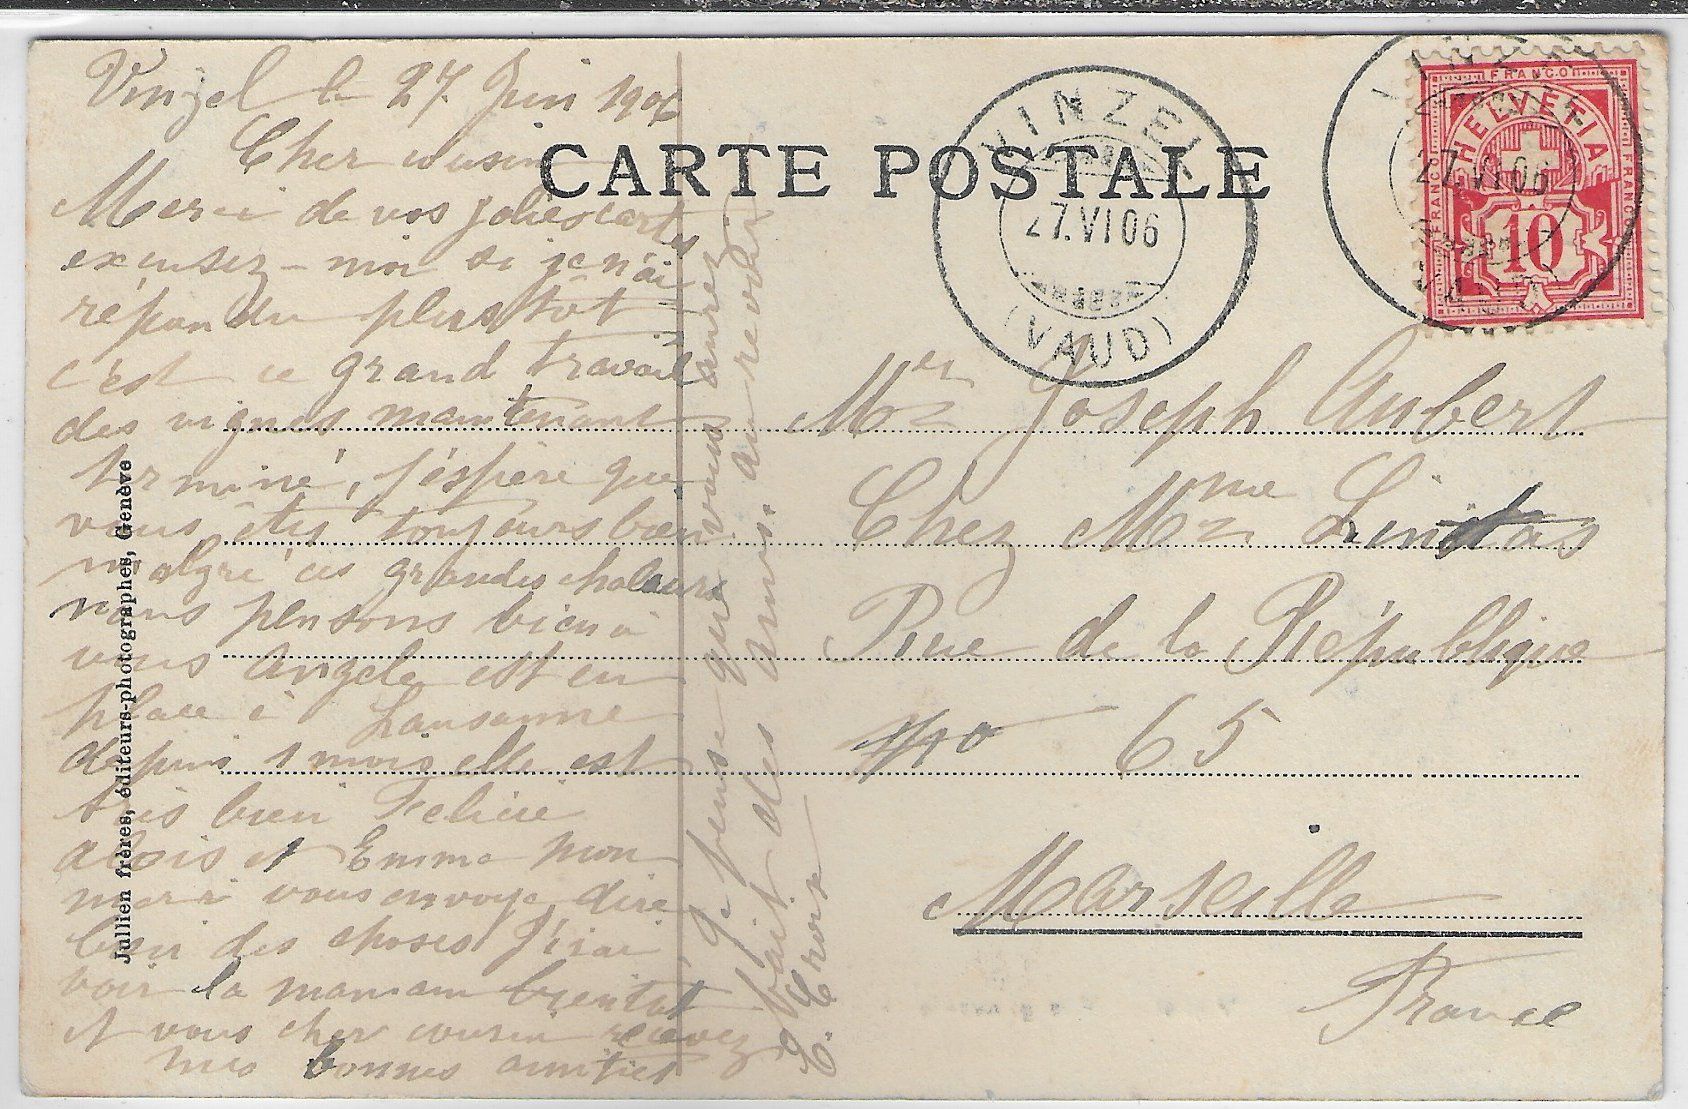 Vinzel le 27 Juin 1906
Cher cousin
Merci de vos jolies cartes
excusez-moi si je n'ai
répondu plus tôt
c'est ce grand travail
des vignes maintenant
terminé, j'éspère que
vous êtes toujours bien
malgré ces grandes chaleurs
nous pensons bien à
vous Angele est en
place à Lausanne
depuis 1 mois elle est
très bien Felicie
aloïs et Emma mon
mari vous envoye dire
bien des choses J'irai
voir la maman bientôt
et vous cher cousin recevez
mes bonnes amitiés
Je pense que vous aurez
fait des au revoir
E. Croix
CARTE POSTALE
VINZEL
27.VI 06
(VAUD)
VINZEL
27.VI 06
(VAUD)
FRANCO
FRANCO
FRANCO
HELVETIA
10
Mr Joseph Aubert
Chez Mme
Rue de la République
65
Marseille
France
Jullien frères, éditeurs-photographes, Genève